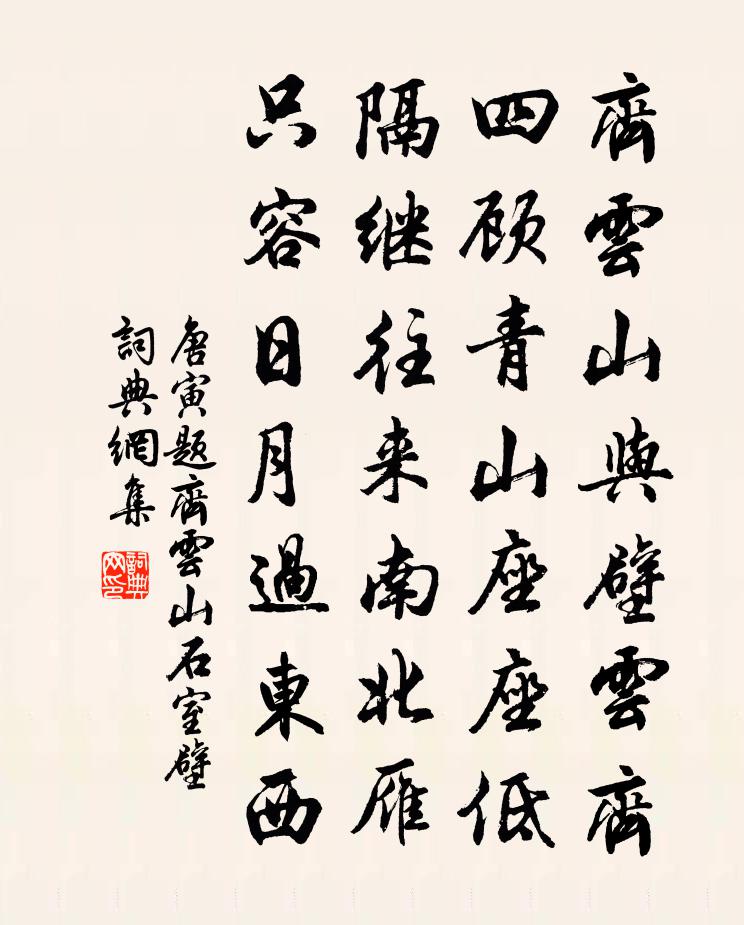 齊雲山與壁雲齊
四顾青山座座低
隔继往来南北雁
只容日月過東西
唐寅題齊雲山石室壁
詞典網集
詞典網印